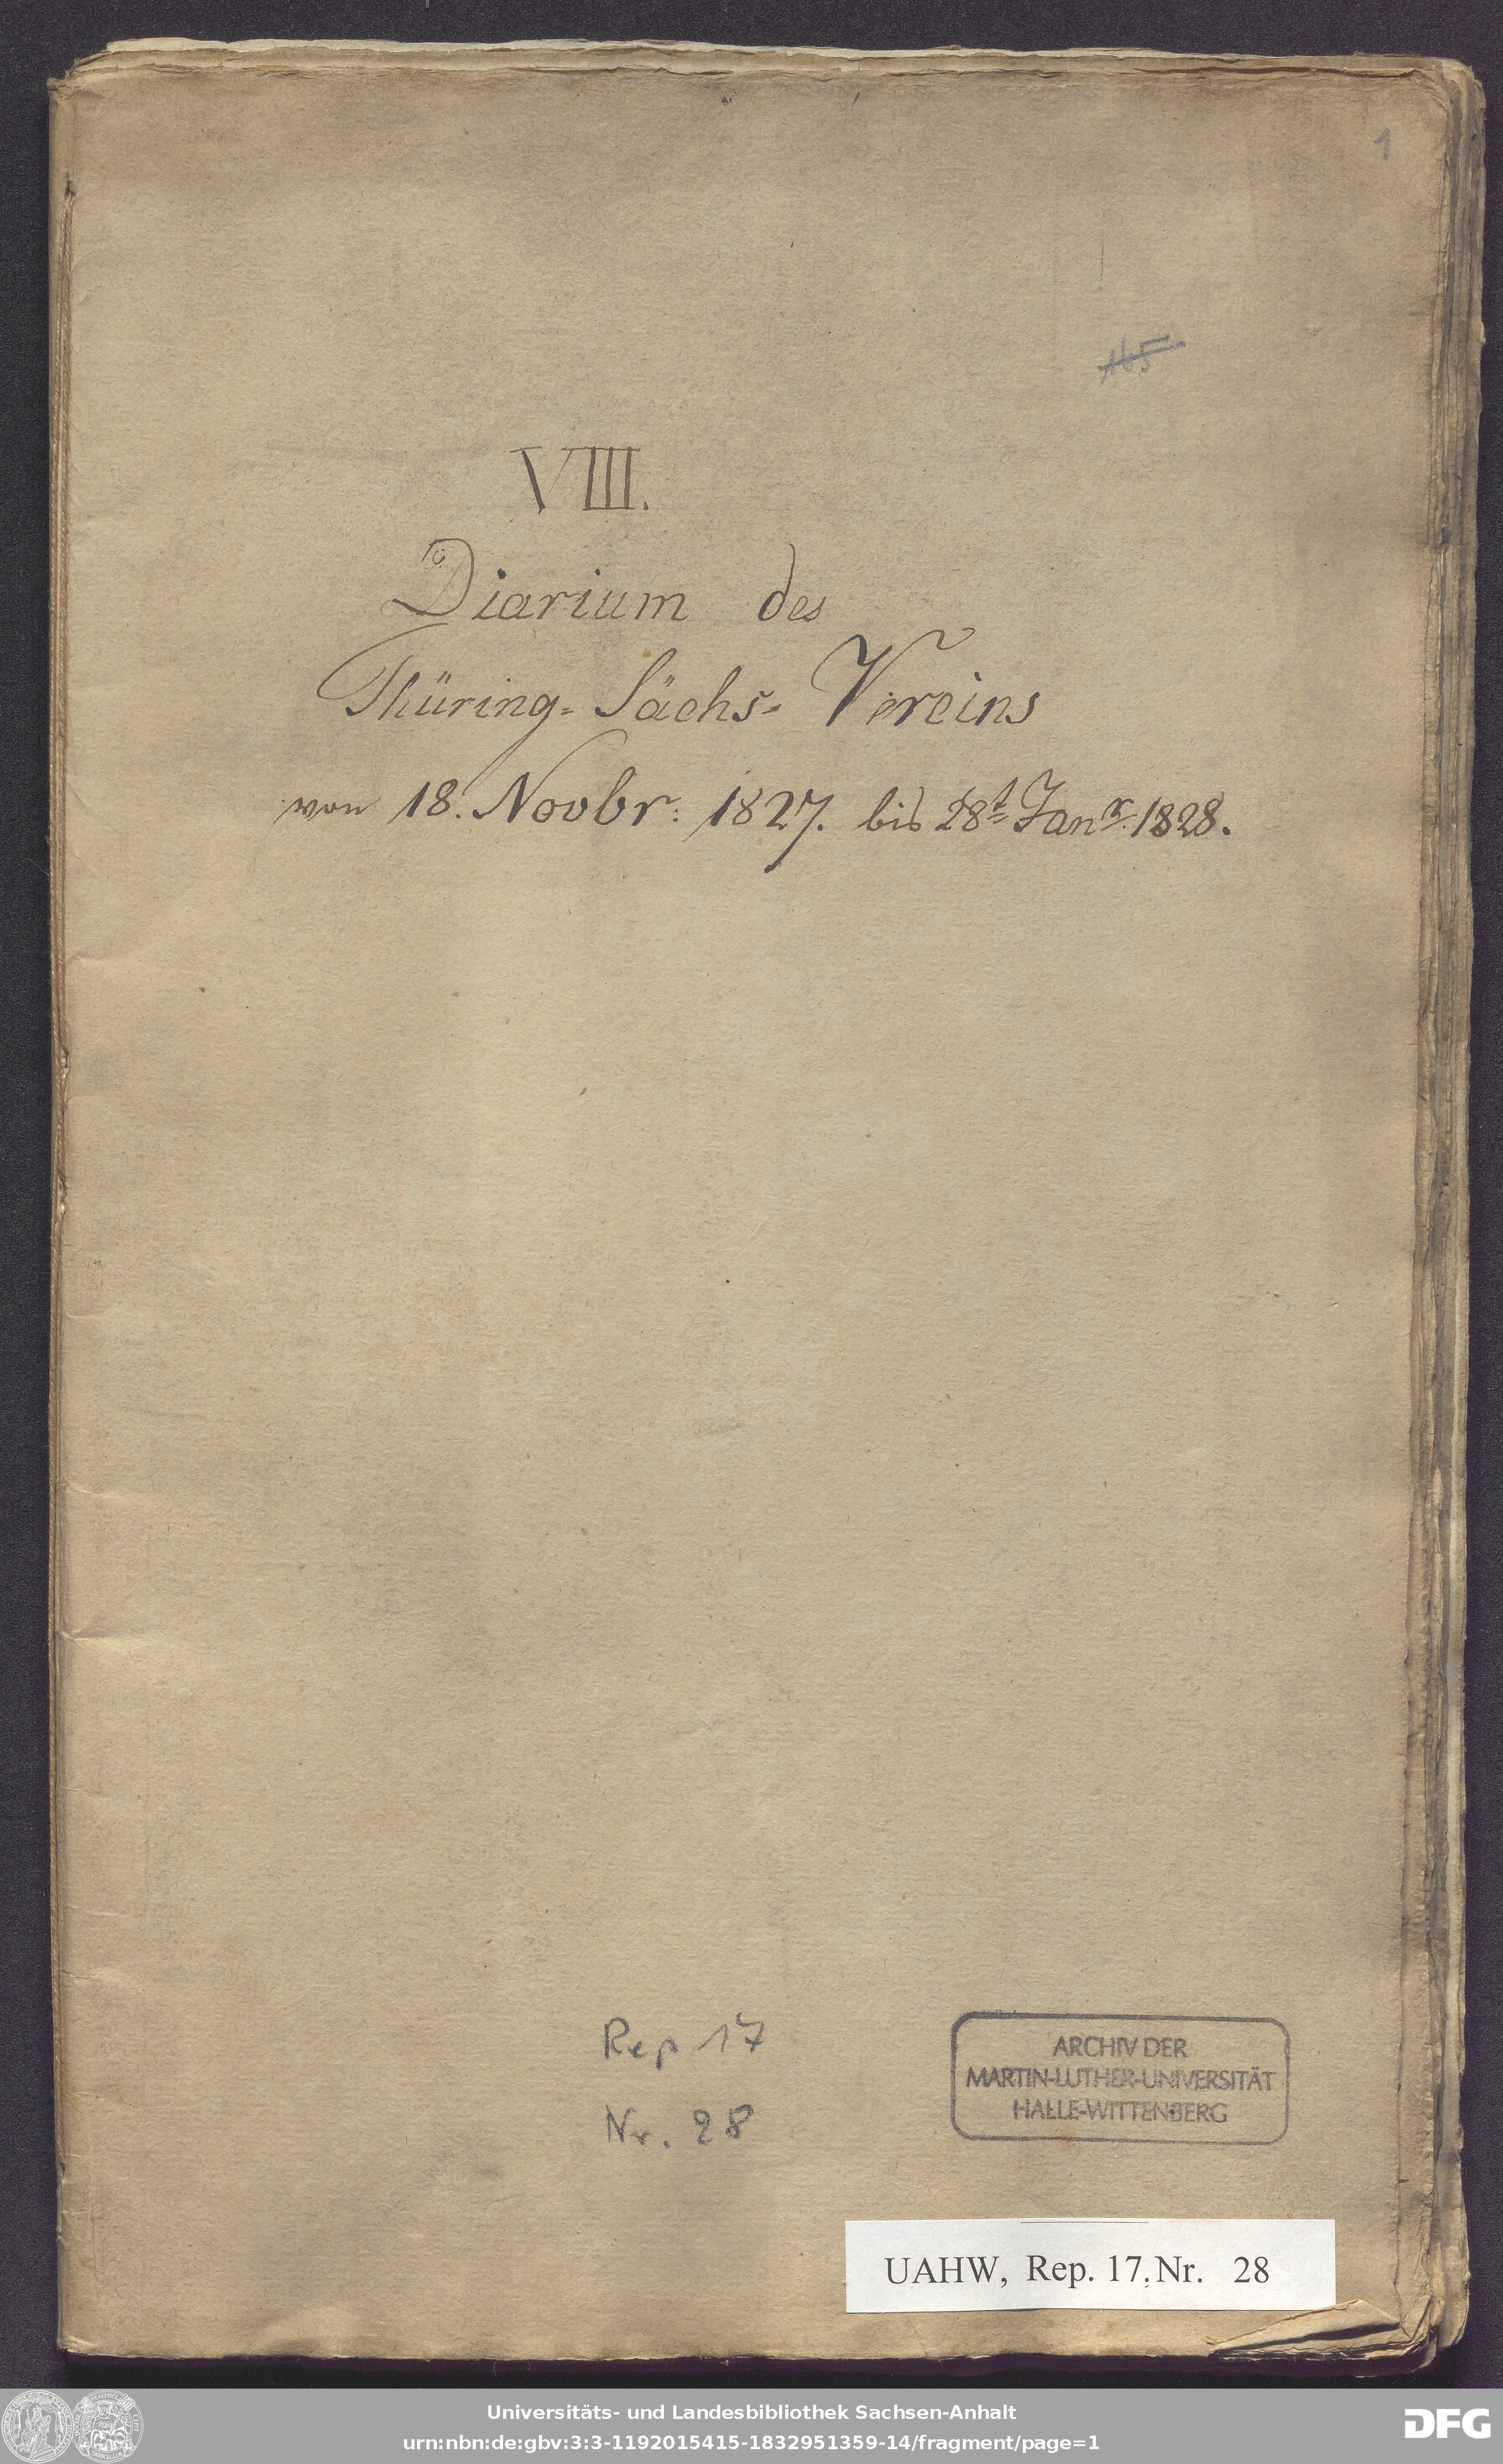 1
VIII.
Diarium des
Thüring- Sächs- Vereins
von 18. Novbr: 1827. bis 28t Janr. 1828.
Rep 17
Nr. 28
ARCHIV DER
MARTIN-LUTHER-UNIVERSITÄT
HALLE-WITTENBERG
UAHW, Rep. 17, Nr. 28
Universitäts- und Landesbibliothek Sachsen-Anhalt
urn:nbn:de:gbv:3:3-1192015415-1832951359-14/fragment/page=1
DFG